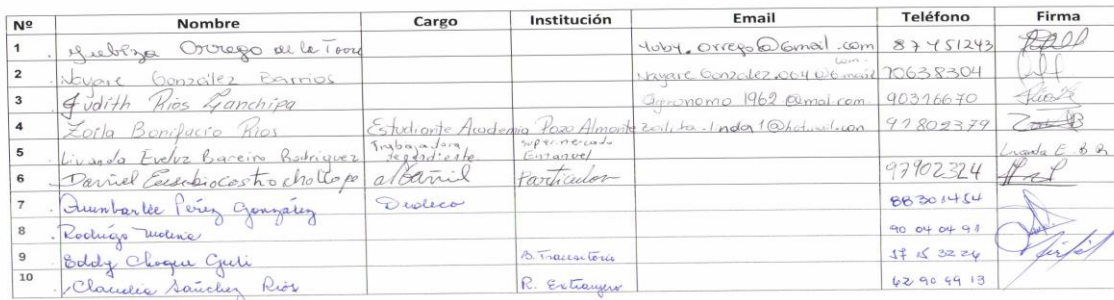 Nº Nombre Cargo Institución Email Teléfono Firma
1 Orrego de la Torre Yuby.orrego@Gmail.com 87451243
2 Nayare González Barrios Nayare Gonzalez.004@Gmail.com 70638304
3 Judith Rios Ganchipa Agronomo 1962@mal.com 90316670
4 Zoila Bonifacio Rios Estudiante Academia Pozo Almonte zoilita-linda1@hotmail.com 97802379
5 Livanda Eveluz Bareiro Rodriguez Trabajadora dependiente supermercado Emanuel Livanda E. B R
6 Daniel Eusebio castro chollapo albañil Particular 97902324
7 Pérez González 88301454
8 Rodrigo Molina 90 04 04 98
9 Eddy Choque 57 15 32 24
10 Claudia Sánchez Rios R. Extranjero 62 90 69 13